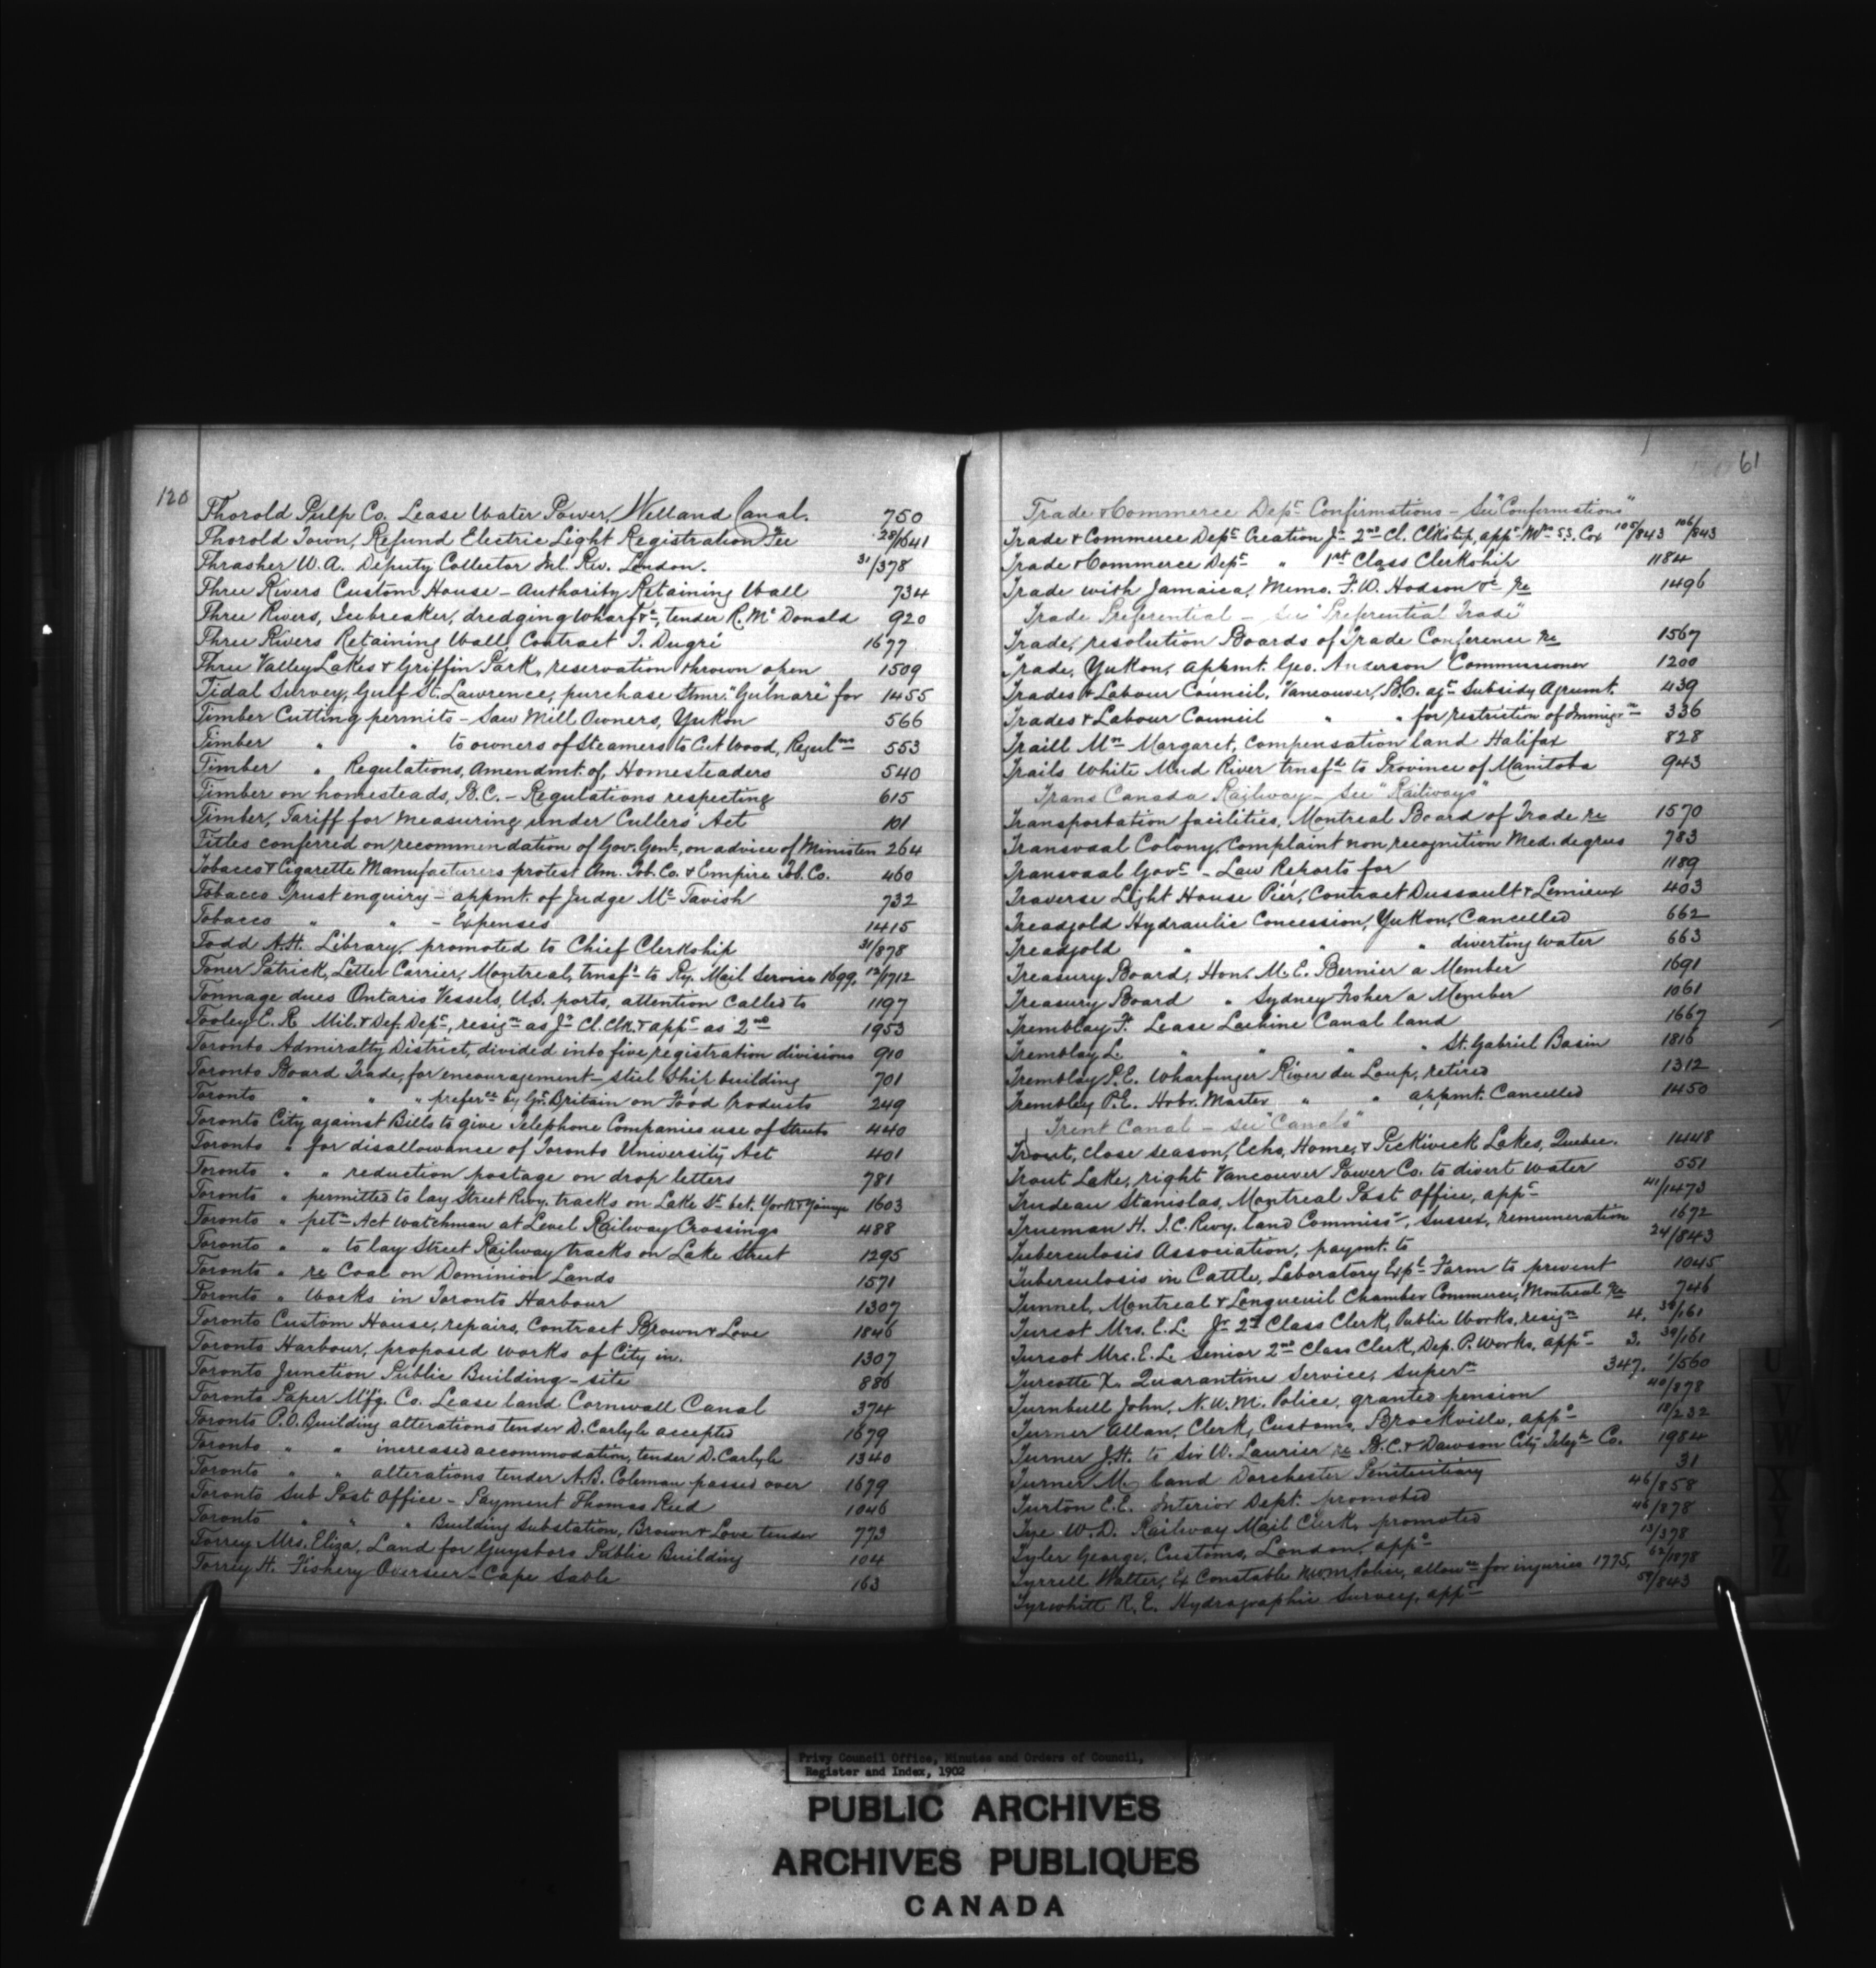 120
Thorold Pulp Co. Lease Water Power, Welland Canal. 750
Thorold Town, Refund Electric Light Registration Fee 28/1641
Thrasher W.A. Deputy Collector Inl. Rev. London. 31/378
Three Rivers Custom House - Authority Retaining Wall 734
Three Rivers, Icebreaker, dredging wharf &c, tender R. McDonald 920
Three Rivers Retaining Wall, Contract T. Dugré 1677
Three Valley Lakes & Griffin Park, reservation thrown open 1509
Tidal Survey, Gulf St. Lawrence, purchase Stmr. "Gulnare" for 1455
Timber Cutting permits - Saw Mill Owners, Yukon 566
Timber " " to owners of Steamers to Cut Wood, Reguln 553
Timber " Regulations, Amendmt. of, Homesteaders 540
Timber on homesteads, B.C. - Regulations respecting 615
Timber, Tariff for measuring under Cullers' Act 101
Titles conferred on recommendation of Gov. Genl., on advice of Ministers 264
Tobacco & Cigarette Manufacturers protest Am. Tob. Co. & Empire Tob. Co. 460
Tobacco Trust enquiry - appmt. of Judge McTavish 732
Tobacco " " - Expenses 1415
Todd A.H. Library, promoted to Chief Clerkship 31/878
Toner Patrick, Letter Carrier, Montreal, trnsfd to Ry. Mail Service 1699, 12/1712
Tonnage dues Ontario Vessels, U.S. ports, attention called to 1197
Tooley E.R. Mil. & Def. Dept, resign as Jr Cl. Clk. & appt as 2nd 1953
Toronto Admiralty District, divided into five registration divisions 910
Toronto Board Trade, for encouragement - steel Ship building 701
Toronto " " " preferce by Gt. Britain on Food Products 249
Toronto City against Bills to give Telephone Companies use of Streets 440
Toronto " for disallowance of Toronto University Act 401
Toronto " " reduction postage on drop letters 781
Toronto " permitted to lay Street Rwy. tracks on Lake St bet. York & Yonge 1603
Toronto " petn Act Watchman at Level Railway Crossings 488
Toronto " " to lay Street Railway tracks on Lake Street 1295
Toronto " re Coal on Dominion Lands 1571
Toronto " Works in Toronto Harbour 1307
Toronto Custom House, repairs, Contract Brown & Love 1846
Toronto Harbour, proposed works of City in. 1307
Toronto Junction Public Building - site 886
Toronto Paper Mfg. Co. Lease land Cornwall Canal 374
Toronto P.O. Building alterations tender D. Carlyle accepted 1679
Toronto " " increased accommodation, tender D. Carlyle 1340
Toronto " " alterations tender A.B. Coleman passed over 1679
Toronto Sub Post Office - Payment Thomas Reid 1046
Toronto " " " Building Substation, Brown & Love tender 773
Torrey Mrs. Eliza, Land for Guysboro Public Building 104
Torrey H. Fishery Overseer - Cape Sable 163
61
Trade & Commerce Dept Confirmations - See "Confirmations"
Trade & Commerce Dept Creation Jr 2nd Cl. Clkship, appt S.S. Cox 105/843 106/843
Trade & Commerce Dept " 1st Class Clerkship 1184
Trade with Jamaica, Memo. F.W. Hodson &c re 1496
Trade Preferential - See "Preferential Trade"
Trade, resolution Boards of Trade Conference re 1567
Trade, Yukon, appmt. Geo. Anderson Commissioner 1200
Trades & Labour Council, Vancouver, B.C. agst Subsidy Agrumt. 439
Trades & Labour Council " " for restriction of Immigrn 336
Traill Mrs Margaret, compensation land Halifax 828
Trails White Mud River trnsfd to Province of Manitoba 943
Trans Canada Railway - See "Railways"
Transportation facilities, Montreal Board of Trade re 1570
Transvaal Colony, Complaint non recognition Med. degrees 783
Transvaal Govt - Law Reports for 1189
Traverse Light House Pier, Contract Dussault & Lemieux 403
Treadgold Hydraulic Concession, Yukon, Cancelled 662
Treadgold " " " diverting water 663
Treasury Board, Hon. M.E. Bernier a Member 1691
Treasury Board " Sydney Fisher a Member 1061
Tremblay F. Lease Lachine Canal land 1667
Tremblay L. " " " " St. Gabriel Basin 1816
Tremblay P.E. Wharfinger River du Loup, retired 1312
Trembley P.E. Hobr. Master " " appmt. Cancelled 1450
Trent Canal - see "Canals"
Trout, close season, Echo, Home, & Pickwick Lakes, Quebec. 1448
Trout Lake, right Vancouver Power Co. to divert water 551
Trudeau Stanislas, Montreal Post Office, appt 41/1473
Trueman H. I.C. Rwy. land Commissr, Sussex, remuneration 1672
Tuberculosis Association, paymt. to 24/843
Tuberculosis in Cattle, Laboratory Expl Farm to prevent 1045
Tunnel, Montreal & Longueuil Chamber Commerce, Montreal re 746
Turcot Mrs. E.L. Jr 2nd Class Clerk, Public Works, resign 4. 38/161
Turcot Mrs. E.L. Senior 2nd Class Clerk, Dep. P. Works, appt 3. 39/161
Turcotte X. Quarantine Services, supern 347, 1/560
Turnbull John, N.W.M. Police, granted pension 40/878
Turner Allan, Clerk, Customs, Brockville, appt 18/232
Turner J.H. to Sir W. Laurier re B.C. & Dawson City Telegh Co. 1984
Turner M. land Dorchester Penitentiary 31
Turton C.E. Interior Dept. promoted 46/858
Tye W.D. Railway Mail Clerk, promoted 46/878
Tyler George, Customs, London, appt 13/378
Tyrrell Walter, Ex Constable N.W.M. Police, allowce for injuries 1775, 62/1878
Tyrwhitt R.E. Hydrographic Survey, appt 59/843
Privy Council Office, Minutes and Orders of Council,
Register and Index, 1902
PUBLIC ARCHIVES
ARCHIVES PUBLIQUES
CANADA